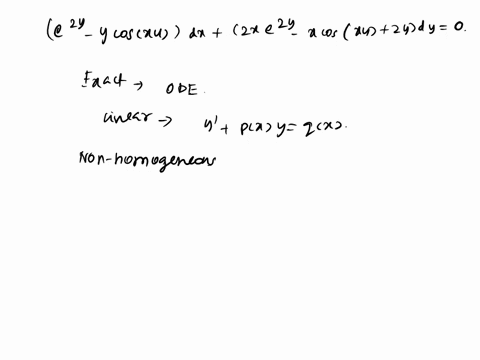 (e^{2y} - y cos(xy)) dx + (2x e^{2y} - x cos(xy) + 2y) dy = 0.
Exact → ODE.
Linear → y' + p(x) y = q(x).
Non-homogeneous